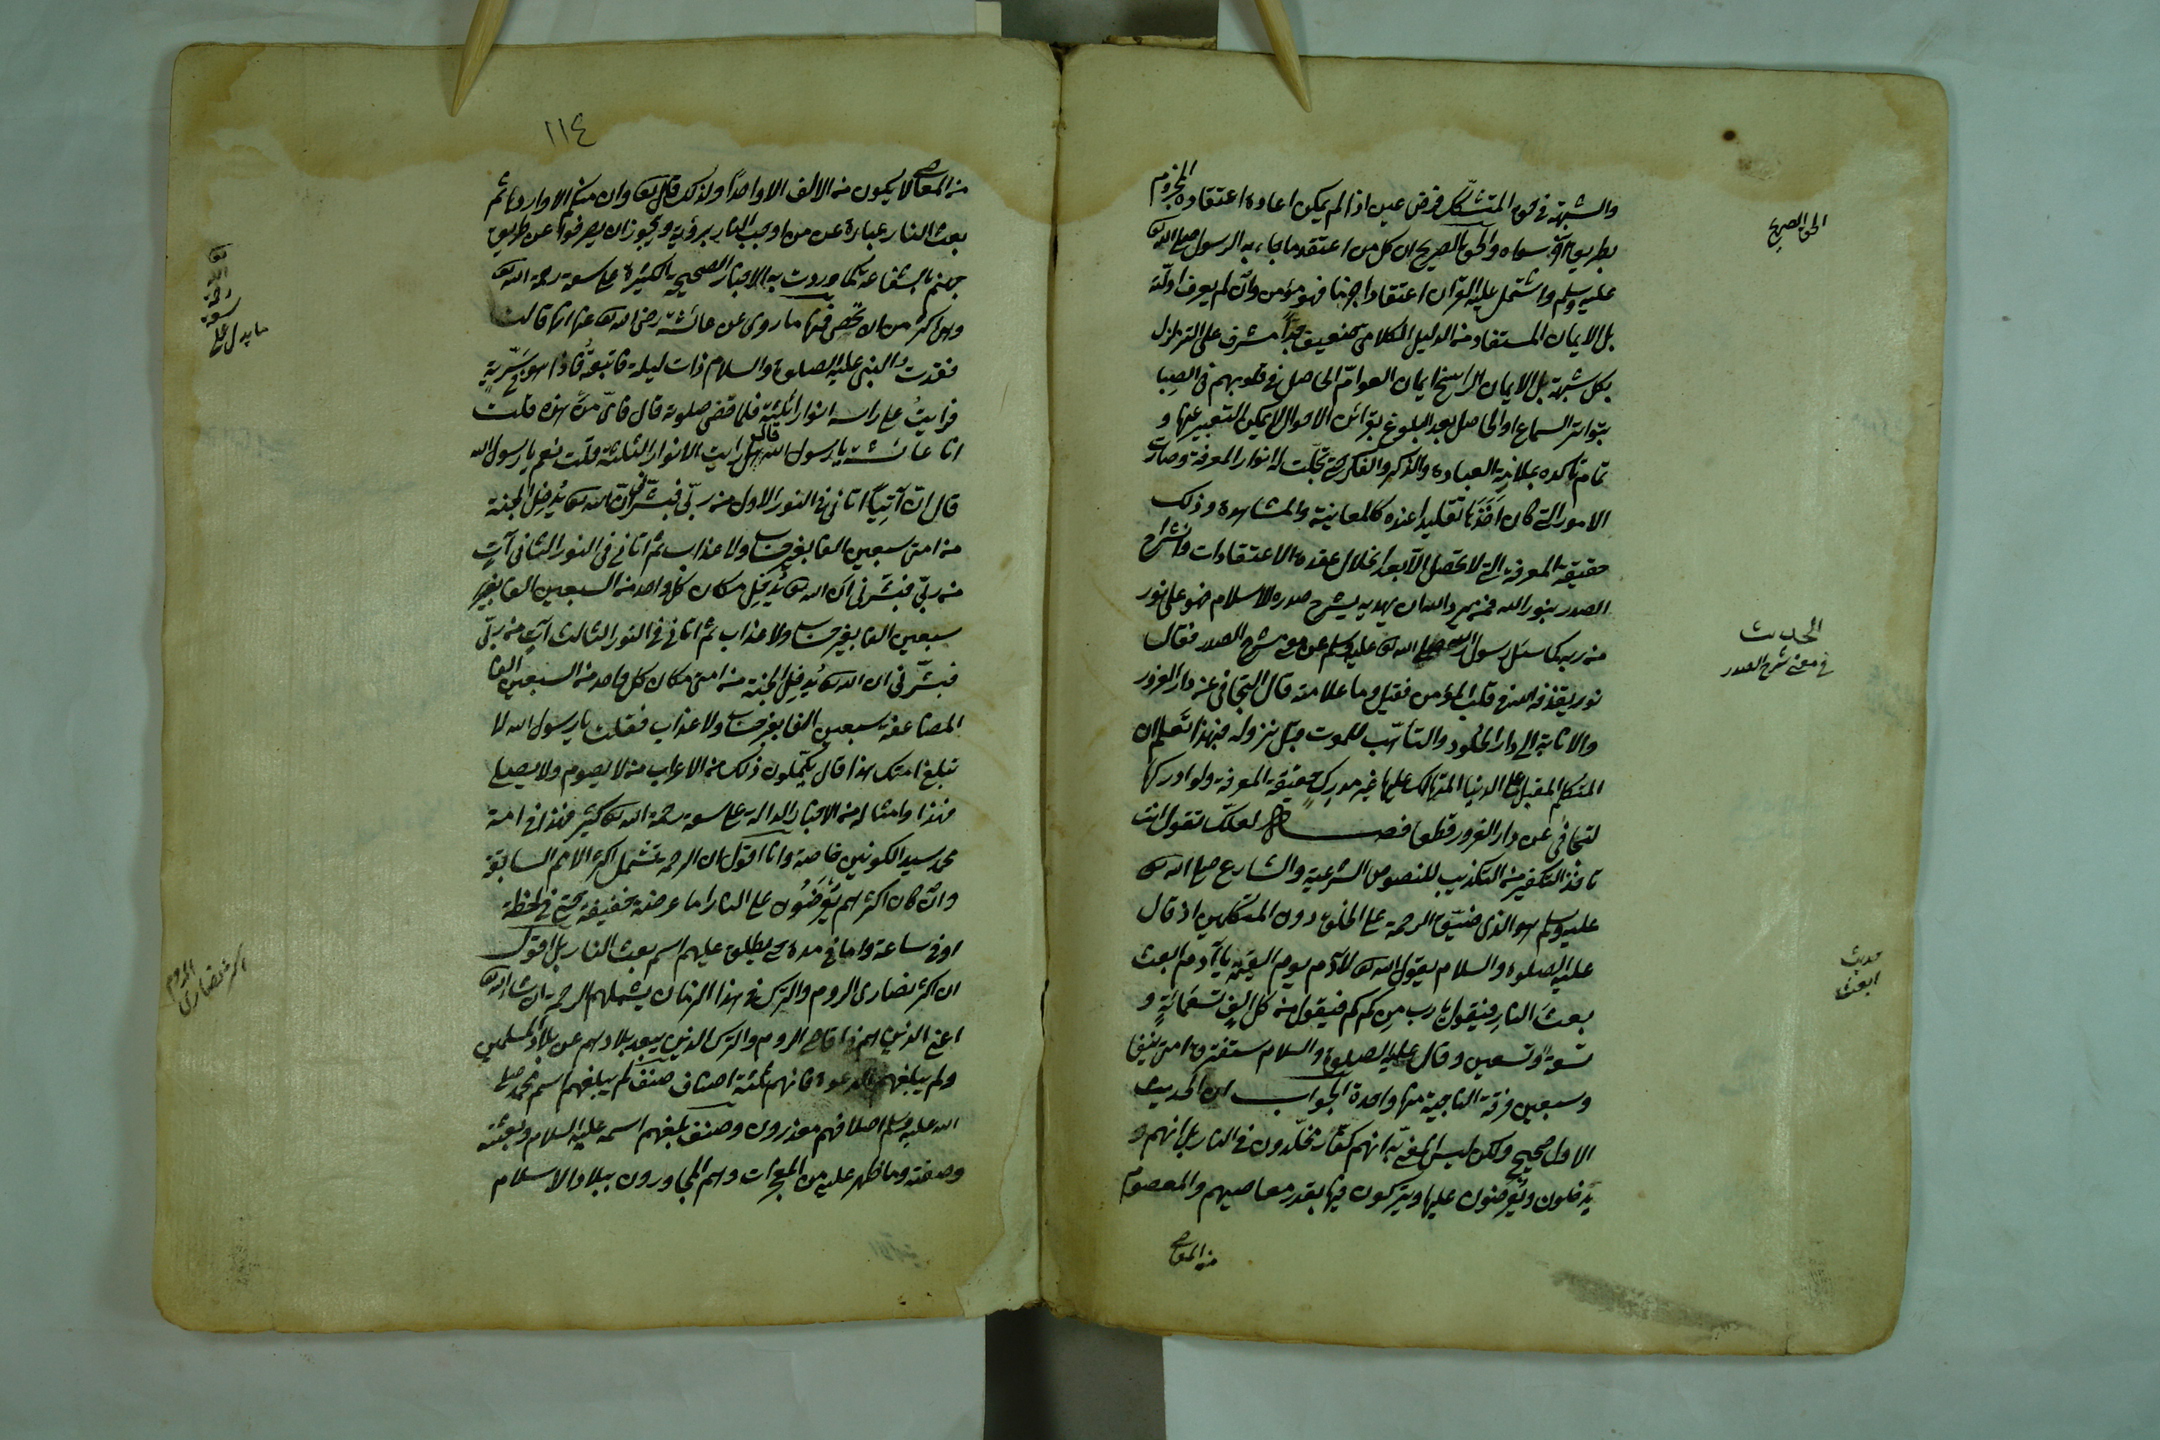 والشبهة في حق المتشكك فرض عين اذا لم يمكن اعادة اعتقاده المجزوم
بطريق آخر سواه والحق الصريح ان كل من اعتقد ما جاء به الرسول صلى الله
عليه وسلم واشتمل عليه القرآن اعتقادا جزما فهو مؤمن وان لم يعرف ادلته
بل الايمان المستفاد من الدليل الكلامي ضعيف جدا مشرف على التزلزل
بكل شبهة بل الايمان الراسخ ايمان العوام الحاصل في قلوبهم في الصبا
بتواتر السماع او الحاصل بعد البلوغ بقرائن الاحوال لا يمكن التعبير عنها و
تمام تاكده بملازمة العبادة والذكر والفكر حتى تجلت له انوار المعرفة وصارت
الامور التي كان اخذها تقليدا عنده كالمعاينة والمشاهدة وذلك
حقيقة المعرفة التي لا تحصل الا بعد انحلال عقدة الاعتقادات وانشراح
الصدر بنور الله فمن يرد الله ان يهديه يشرح صدره للاسلام فهو على نور
من ربه كما سئل رسول الله صلى الله عليه وسلم عن معنى شرح الصدر فقال
نور يقذفه الله في قلب المؤمن فقيل وما علامته قال التجافي عن دار الغرور
والانابة الى دار الخلود والتأهب للموت قبل نزوله فبهذا تعلم ان
المتكلم المقبل على الدنيا المتهالك عليها غير مدرك حقيقة المعرفة ولو ادركها
لتجافى عن دار الغرور قطعا فصل لعلك تقول انت
تاخذ التكفير من التكذيب للنصوص الشرعية والشارع صلى الله
عليه وسلم هو الذي ضيق الرحمة على الخلق دون المتكلمين اذ قال
عليه الصلوة والسلام يقول الله لآدم يوم القيمة يا آدم ابعث
بعث النار فيقول يا رب من كم كم فيقول من كل الف تسعمائة و
تسعة وتسعين وقال عليه الصلوة والسلام ستفترق امتي نيفا
وسبعين فرقة الناجية منها واحدة الجواب ان الحديث
الاول صحيح ولكن ليس المعنى به انهم كفار مخلدون في النار بل انهم
يدخلون ويعرضون عليها ويتركون فيها بقدر معاصيهم والمعصوم
من المعاصي
الحق الصريح
الحديث
في معنى شرح الصدر
حديث
ابعث
١١٤
من المعاصي لا يكون من الالف الا واحدا ولذلك قال وان منكم الا واردها ثم
بعث النار عبارة عن من اوجب النار بذنوبه ويجوز ان يصرفوا عن طريق
جهنم بالشفاعة كما وردت به الاخبار الصحيحة الكثيرة على سعة رحمة الله
وهي اكثر من ان تحصى فمنها ما روي عن عائشة رضي الله عنها انها قالت
فقدت النبي عليه الصلوة والسلام ذات ليلة فاتبعته فاذا هو في
فرايت على راسه انوارا ثلثة فلما قضى صلوته قال من هذه قلت
انا عائشة يا رسول الله قال هل رايت الانوار الثلثة قلت نعم يا رسول الله
قال ان آتيا اتاني في النور الاول من ربي فبشرني ان الله يدخل الجنة
من امتي سبعين الفا بغير حساب ولا عذاب ثم اتاني في النور الثاني آت
من ربي فبشرني ان الله يدخل مكان كل واحد من السبعين الفا بغير
سبعين الفا بغير حساب ولا عذاب ثم اتاني في النور الثالث آت من ربي
فبشرني ان الله يدخل الجنة من امتي مكان كل واحد من السبعين الفا
المضاعفة سبعين الفا بغير حساب ولا عذاب فقلت يا رسول الله لا
تبلغ امتك هذا قال يكملون ذلك من الاعراب من لا يصوم ولا يصلي
فهذا وامثاله من الاخبار الدالة على سعة رحمة الله كثير فهذا في امة
محمد سيد الكونين خاصة وانا اقول ان الرحمة تشمل اكثر الامم السابقة
وان كان اكثرهم يعرضون على النار اما عرضة خفيفة حتى في لحظة
او في ساعة واما في مدة حتى يطلق عليهم اسم بعث النار بل اقول
ان اكثر نصارى الروم والترك في هذا الزمان يشملهم الرحمة ان شاء الله
اعني الذين هم في اقاصي الروم والترك الذين يبعد بلادهم عن بلاد المسلمين
ولم يبلغهم الدعوة فانهم ثلثة اصناف صنف لم يبلغهم اسم محمد صلى
الله عليه وسلم اصلا فهم معذورون وصنف بلغهم اسمه عليه السلام وبعثته
وصفته وما ظهر عليه من المعجزات وهم المجاورون ببلاد الاسلام
ما يدل على
سعة
رحمة
الله
اكثر نصارى
الروم